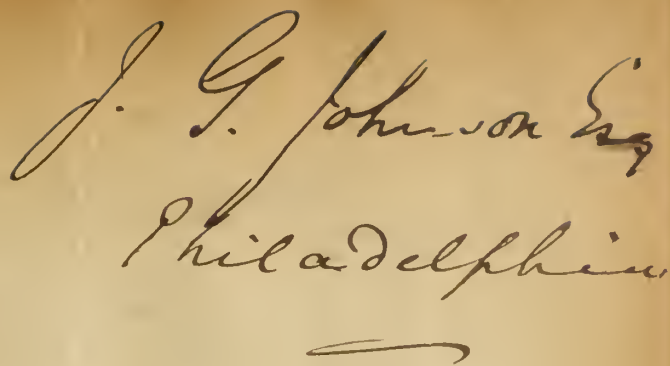 J. G. Johnson Esq
Philadelphia.